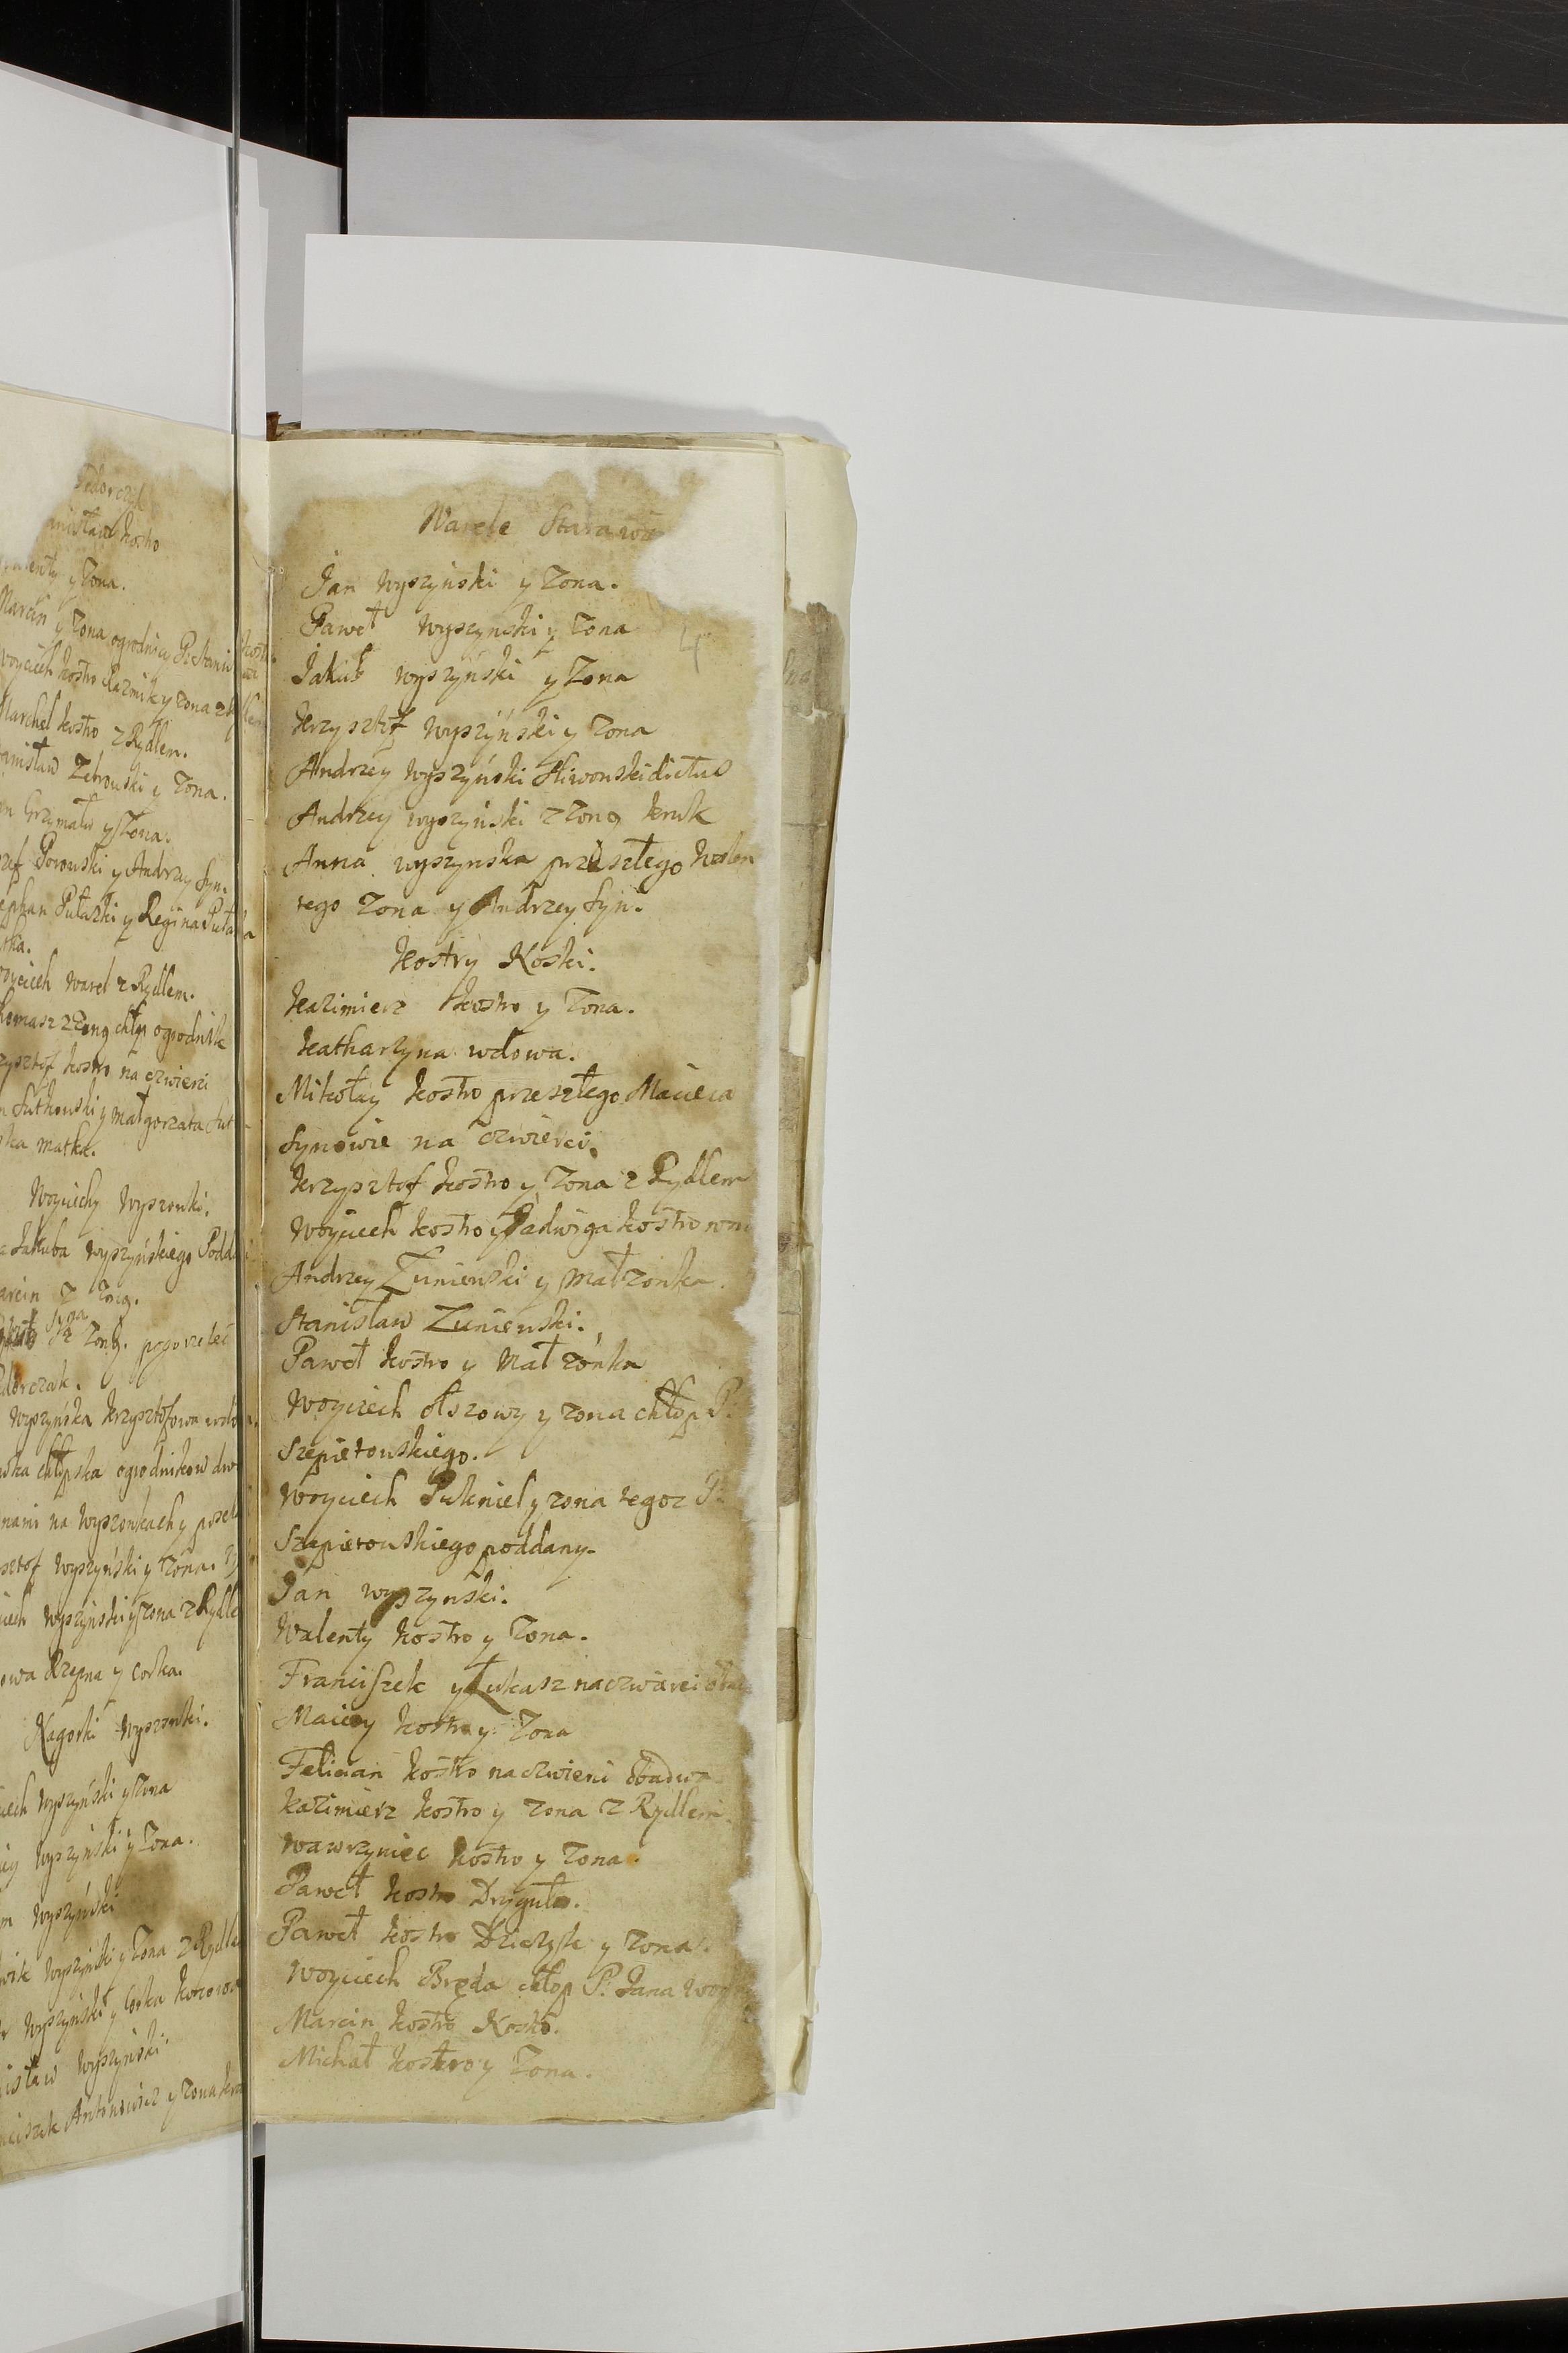 Fedorczyk
nisław kostro
y zona.
Marcin y zona ogrodnicy P. Stani
Woyciech kostro Kaźmik y zona z
Marchel kostro z Rydlem.
anisław Zebrowski y zona.
Grzymała y zona.
Porowski y Andrzey syn.
ephan Pułazki y Regina Puła
tka.
oyciech Warel z Rydlem.
homasz z zoną chłop ogrodnik
zysztof kostro na czwierci
Sutkowski y Małgorzata Sut
ska matka.
Woyciechy Wyszonki.
Jakuba Wyszyńskiego Podda
arcin z zoną.
syna
z zoną. pogorzelec
edorczak.
Wyszyńska krzysztofowa wdo
chłopska ogrodnikow dw
nami na Wyszonkach y
sztof Wyszyński y zona.
iech Wyszyński y zona z Rydle
owa Rzepna y corka.
Nagorki Wyszonki.
iech Wyszyński y zona
ey Wyszyński y zona.
m Wyszyński
wik Wyszyński y zona z Rydle
Wyszyński y corka
isław Wyszyński.
nciszek Antonowicz y zona
Warele Starawie
4
Jan Wyszyński y zona.
Paweł Wyszynski y zona
Jakub Wyszyński y zona
Krzysztof Wyszyński y zona
Andrzey Wyszyński Sliwonski dictus
Andrzey wyszyński z zoną kruk
Anna wyszynska przeszłego Walen
tego zona y Andrzey syn.
Kostry Noski.
Kazimierz kostro y zona.
Katharzyna wdowa.
Mikołay kostro przeszłego Macieia
synowie na czwierci.
Krzysztof kostro y zona z Rydlem
Woyciech kostro y Jadwiga kostrowna
Andrzey Zuniewski y małzonka.
Stanisław Zuniewski.
Paweł kostro y małzonka
Woyciech olszowy y zona chłop P.
Szepietowskiego.
Woyciech Pukniel y zona tegoz P.
Szepietowskiego poddany.
Jan wyszynski.
Walenty kostro y zona.
Franciszek y Łukasz na czwierci
Maciey kostro y zona
Felician kostro na czwierci obadwa
Kazimierz kostro y zona z Rydlem.
Wawrzyniec kostro y zona.
Paweł kostro Dryguła.
Paweł kostro y zona.
Woyciech Bręda chłop P. Jana
Marcin kostro Nosko.
Michał kostro y zona.